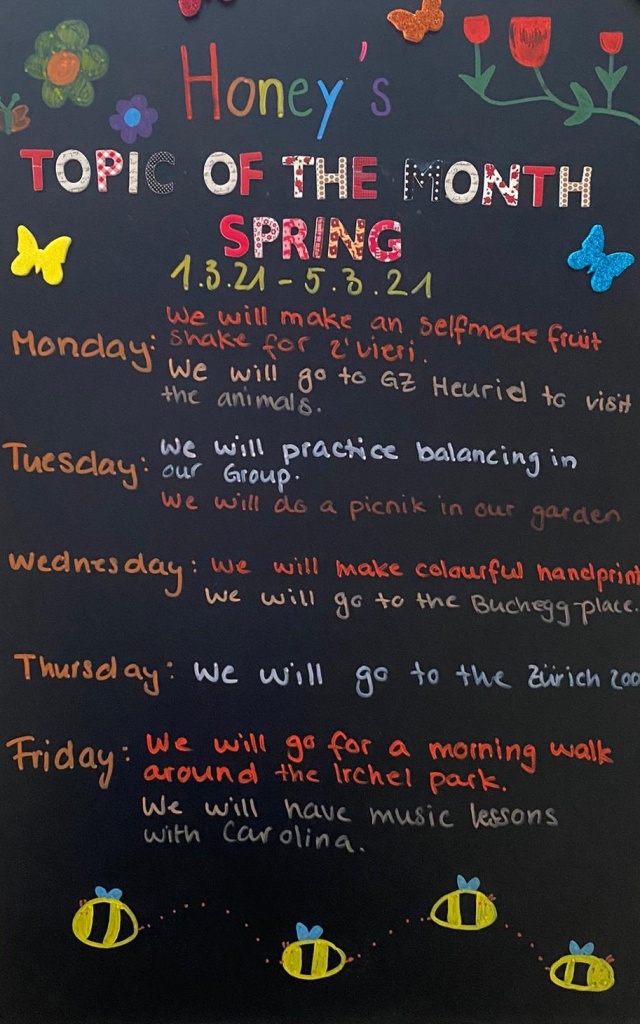 Honey's
TOPIC OF THE MONTH
SPRING
1.3.21 - 5.3.21
Monday: We will make an selfmade fruit
shake for z'vieri.
We will go to GZ Heurid to visit
the animals.
Tuesday: We will practice balancing in
our Group.
We will do a picnik in our garden
Wednesday: We will make colourful handprint
We will go to the Buchegg-place.
Thursday: We will go to the Zürich zoo
Friday: We will go for a morning walk
around the Irchel park.
We will have music lessons
with Carolina.